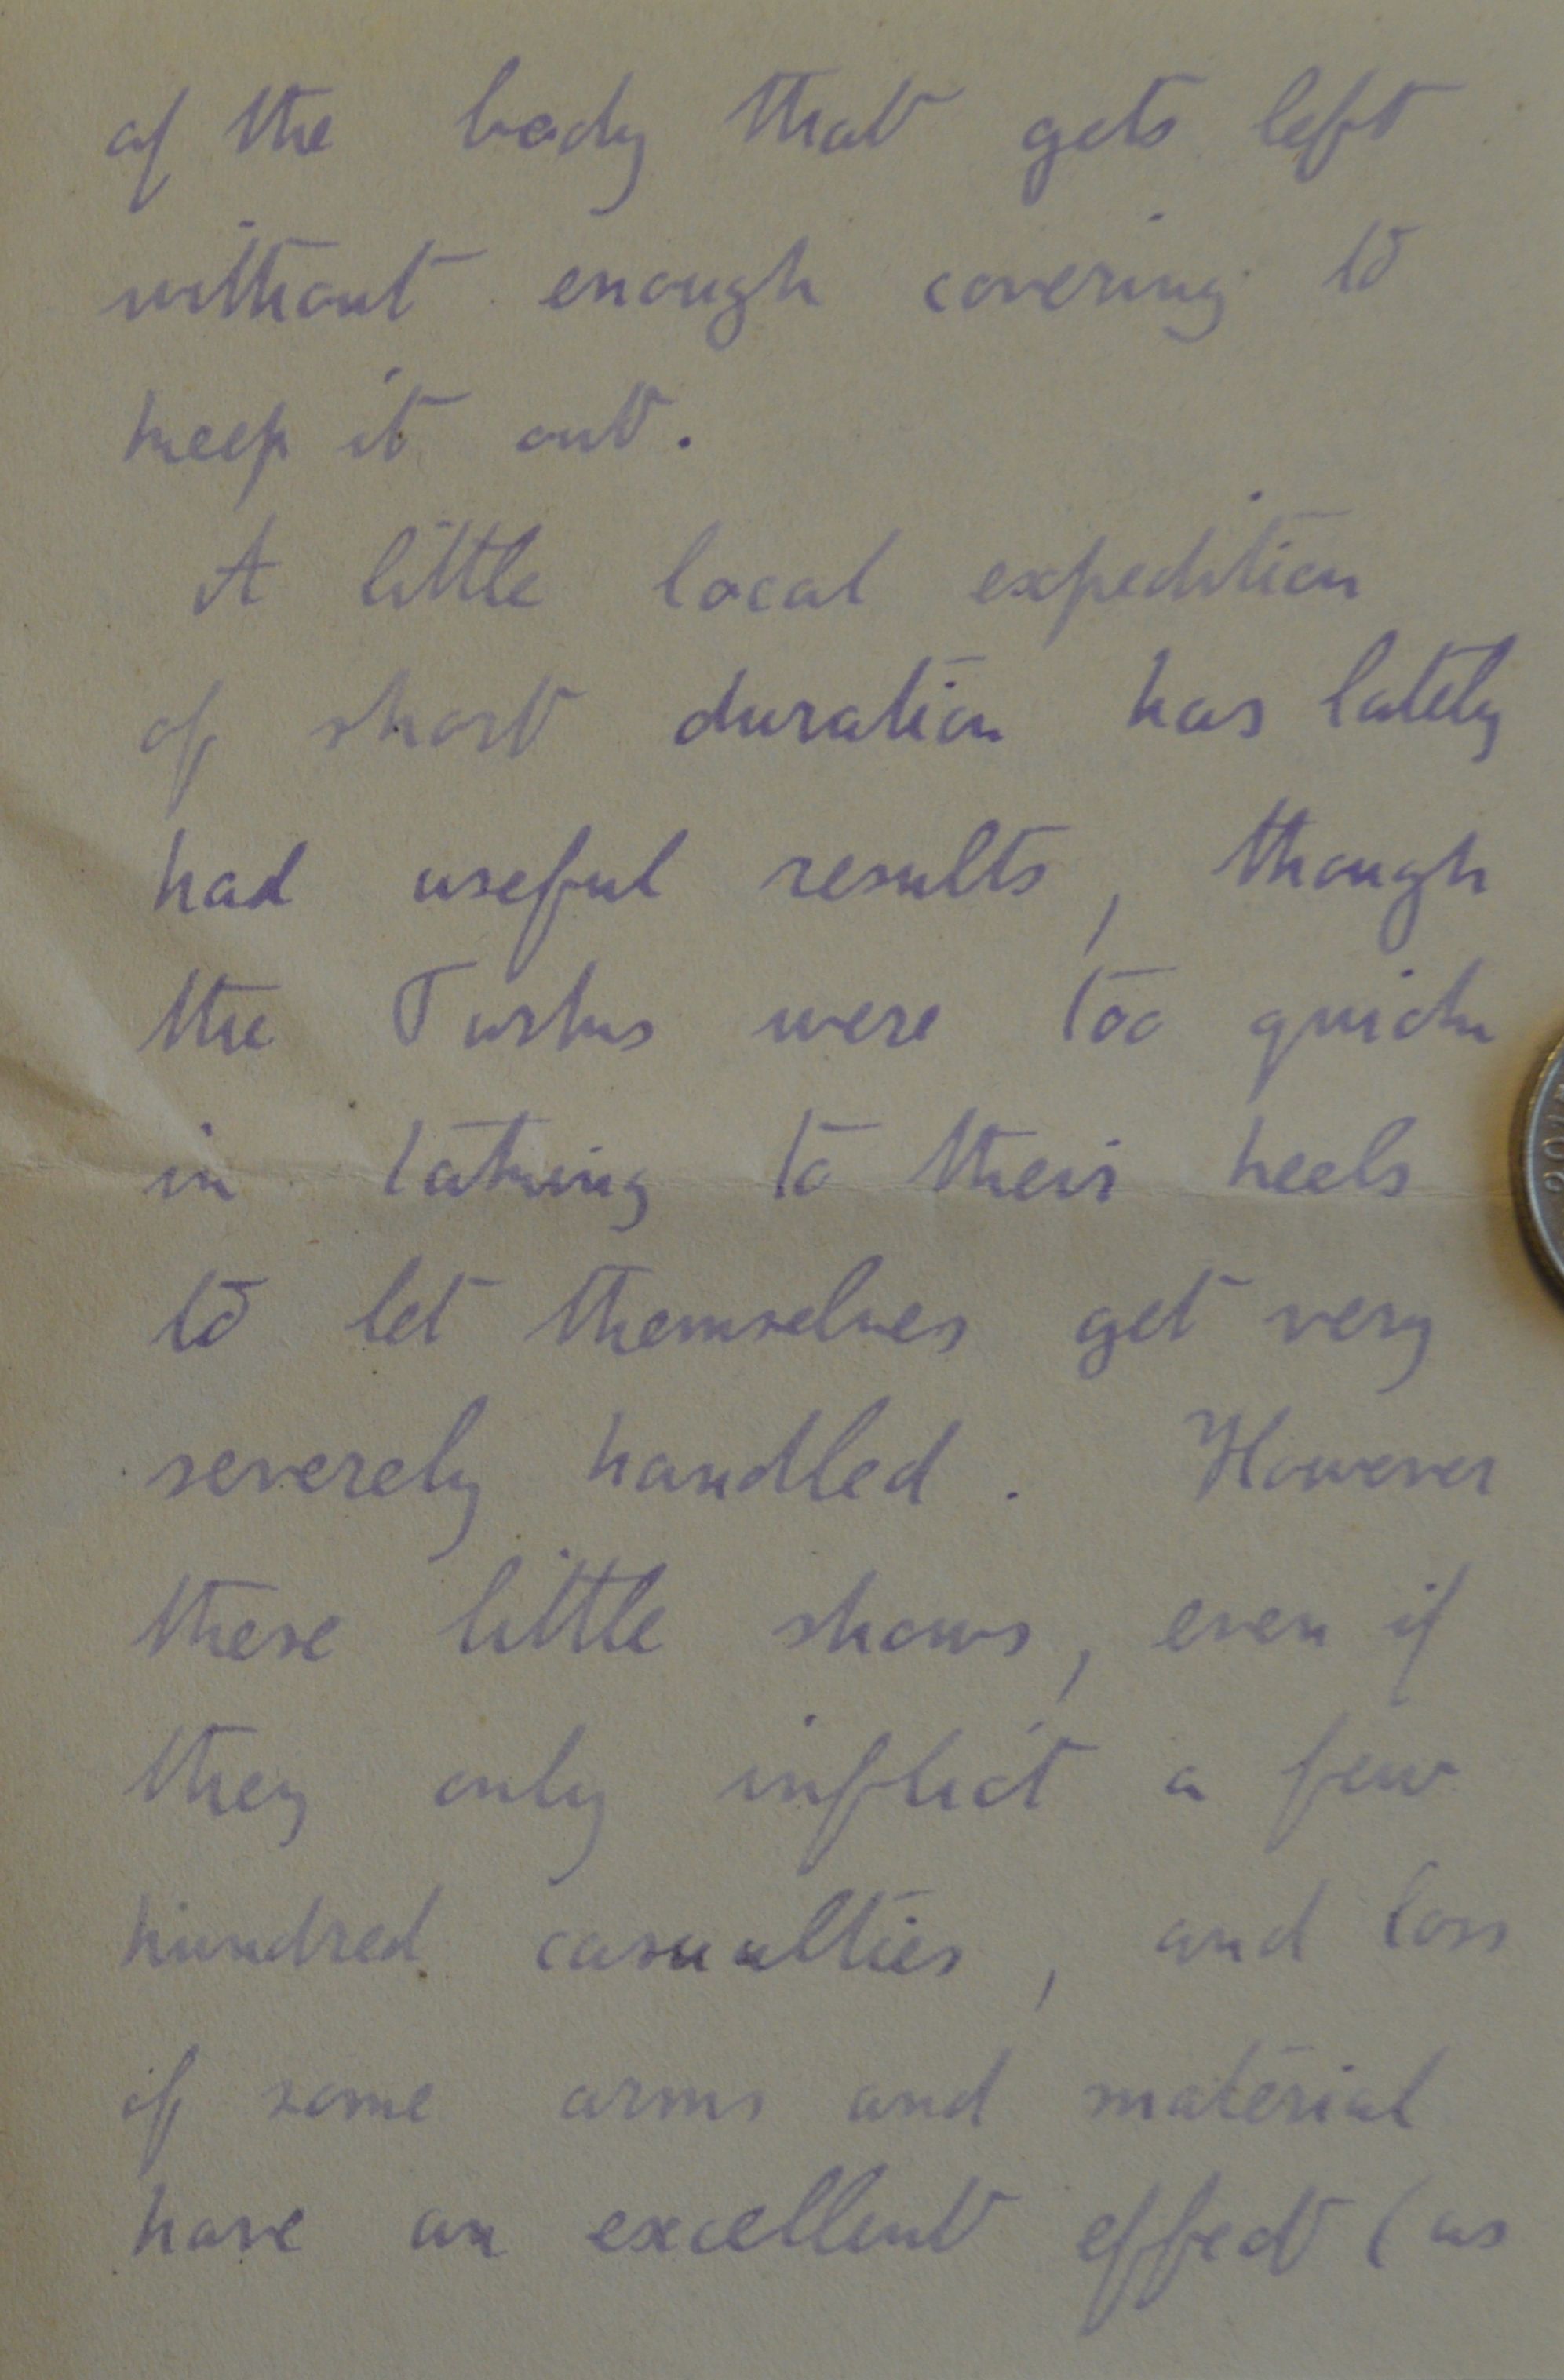 of the body that gets left
without enough covering to
keep it out.
A little local expedition
of short duration has lately
had useful results, though
the Turks were too quick
in taking to their heels
to let themselves get very
severely handled. However
these little shows, even if
they only inflict a few
hundred casualties, and loss
of some arms and material
have an excellent effect (as